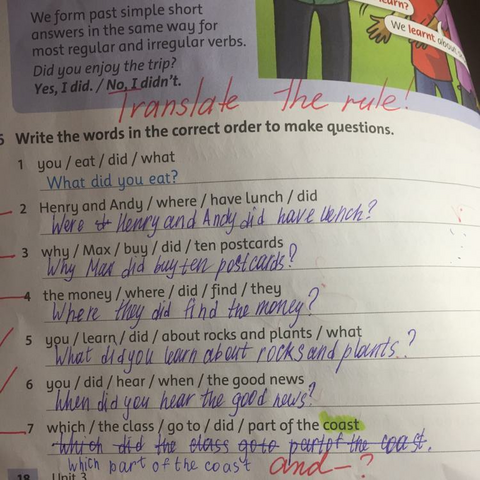 We form past simple short
answers in the same way for
most regular and irregular verbs.
Did you enjoy the trip?
Yes, I did. / No, I didn't.
learn?
We learnt about
Translate the rule!
5 Write the words in the correct order to make questions.
1 you / eat / did / what
What did you eat?
2 Henry and Andy / where / have lunch / did
Were Henry and Andy did have lench?
3 why / Max / buy / did / ten postcards
Why Max did buy ten postcards?
4 the money / where / did / find / they
Where they did find the money?
5 you / learn / did / about rocks and plants / what
What did you learn about rocks and plants?
6 you / did / hear / when / the good news
When did you hear the good news?
7 which / the class / go to / did / part of the coast
Which did the class go to part of the coast.
which part of the coast and — ?
18 Unit 3